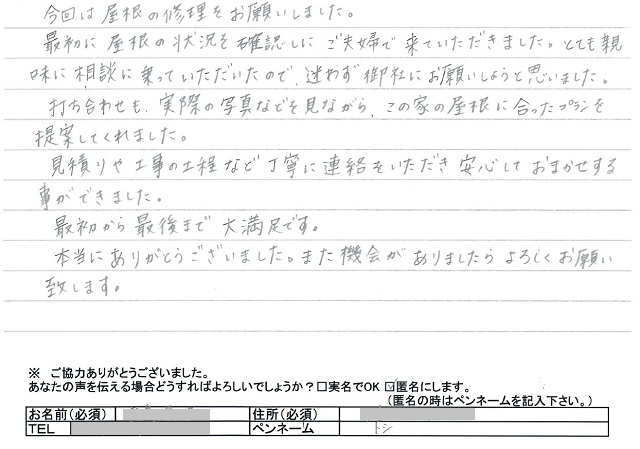 今回は屋根の修理をお願いしました。
最初に屋根の状況を確認しにご夫婦で来ていただきました。とても親
味に相談に乗っていただいたので、迷わず御社にお願いしようと思いました。
打ち合わせも、実際の写真などを見ながら、この家の屋根に合ったプランを
提案してくれました。
見積りや工事の工程など丁寧に連絡をいただき安心しておまかせする
事ができました。
最初から最後まで大満足です。
本当にありがとうございました。また機会がありましたらよろしくお願い
致します。
※ ご協力ありがとうございました。
あなたの声を伝える場合どうすればよろしいでしょうか？□実名でOK ☑匿名にします。
(匿名の時はペンネームを記入下さい。)
お名前(必須) 住所(必須)
TEL ペンネーム トシ